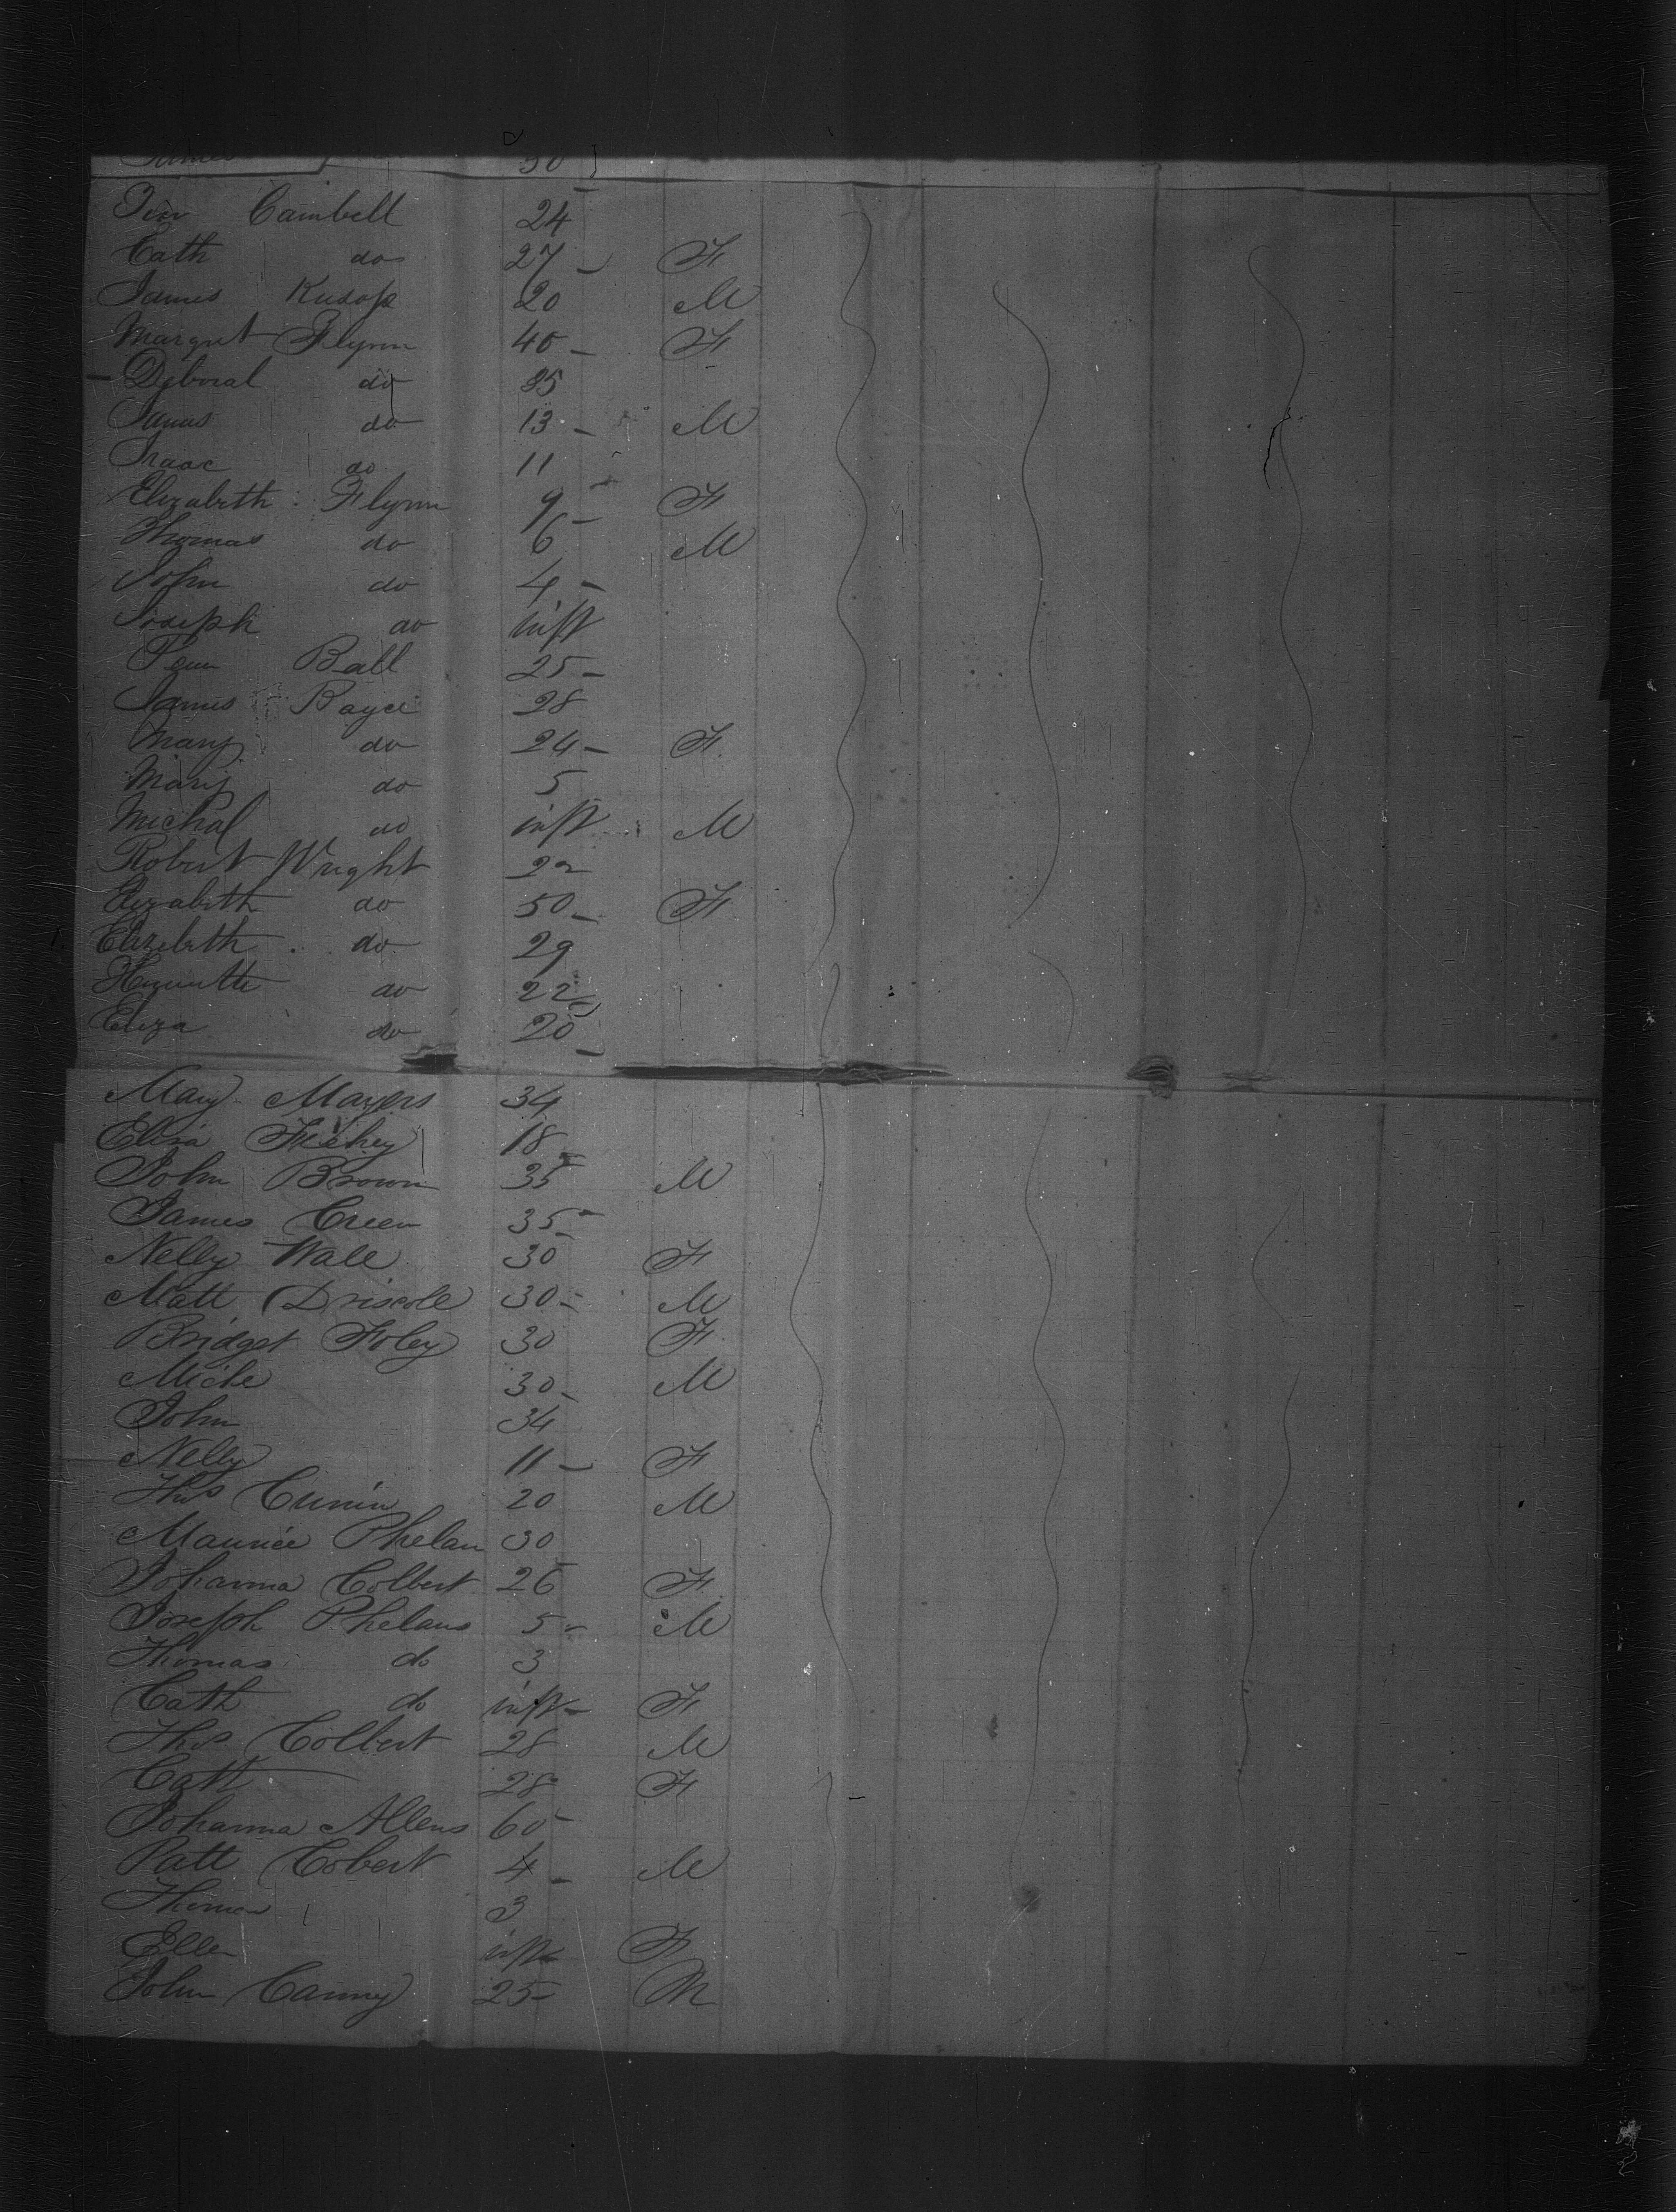 James 30
Cambell 24
Cath do 27 F
James 20 M
Margret Flynn 40 F
Deboral do 35
James do 13 M
Isaac do 11
Elizabeth Flynn 9 F
Thomas do 6 M
John do 4
Joseph do inft
Ball 25
James Bayce 28
Mary do 24 F
Mary do 5
Michal do inft M
Robert Wright 22
Elizabeth do 50 F
Elizebeth do 29
do 22
Eliza do 20
Mary Mayers 34
Eliza 18
John Brown 35 M
James Creen 35
Nelly Wall 30 F
Matt Driscole 30 M
Bridget Foley 30 F
Miche 30 M
John 34
Nelly 11 F
Thos 20 M
Maurice Phelan 30
Johanna Colbert 26 F
Joseph Phelans 5 M
Thomas do 3
Cath do inft F
Thos Colbert 28 M
Catt 28 F
Johanna Allens 60
Patt Cobert 4 M
Thomas 3
Ellen inft F
John Canny 25 M